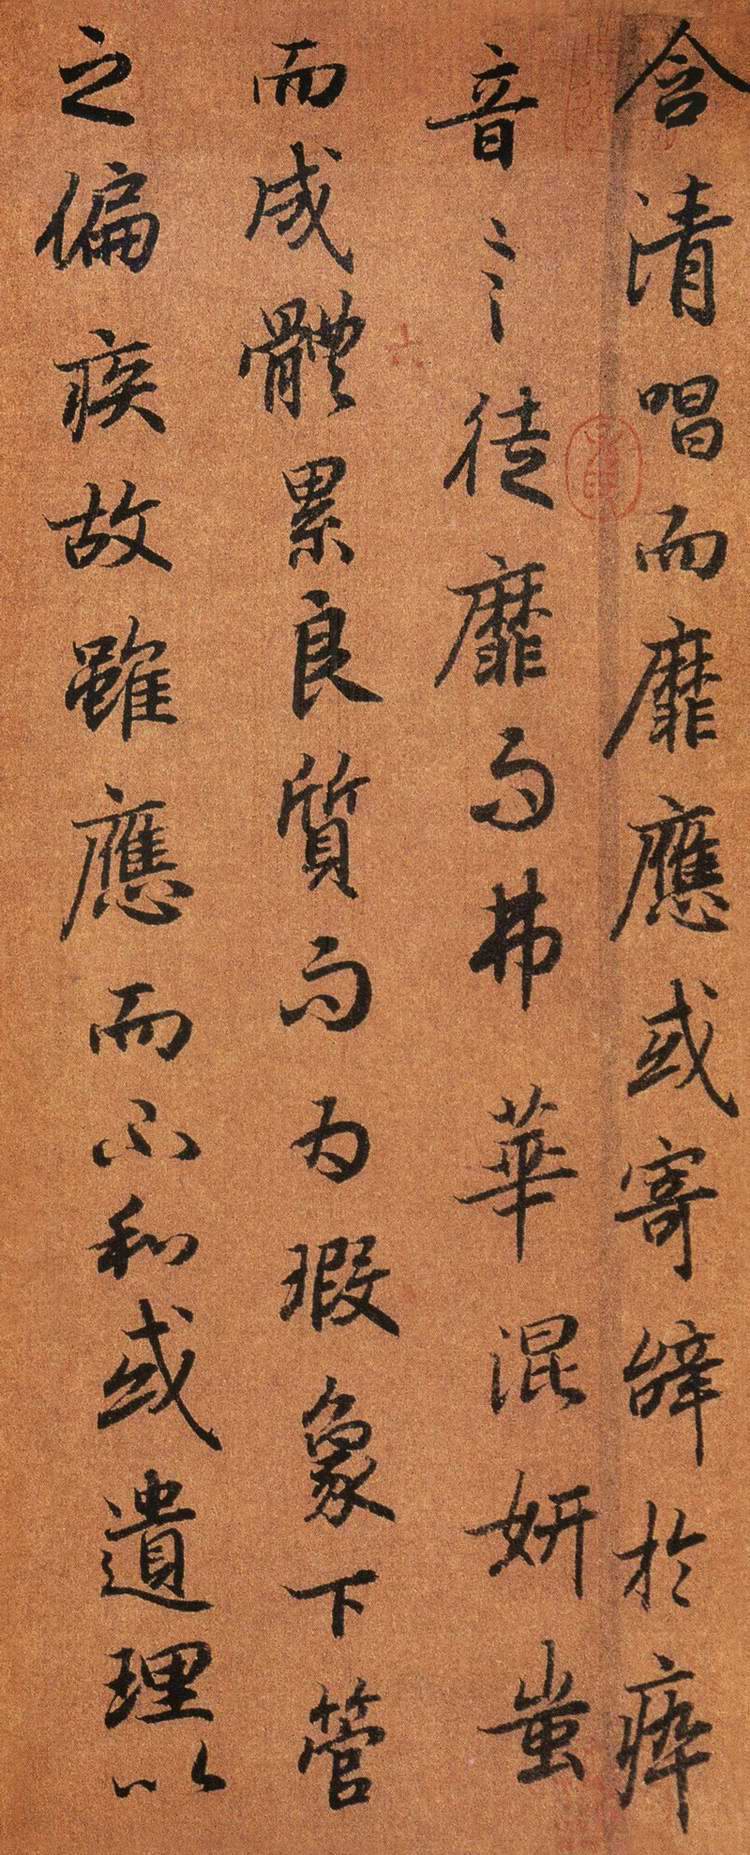 含清唱而靡應或寄辝於瘁
音言徒靡而弗華混妍蚩
而成體累良質而為瑕象下管
之偏疾故雖應而不和或遺理以